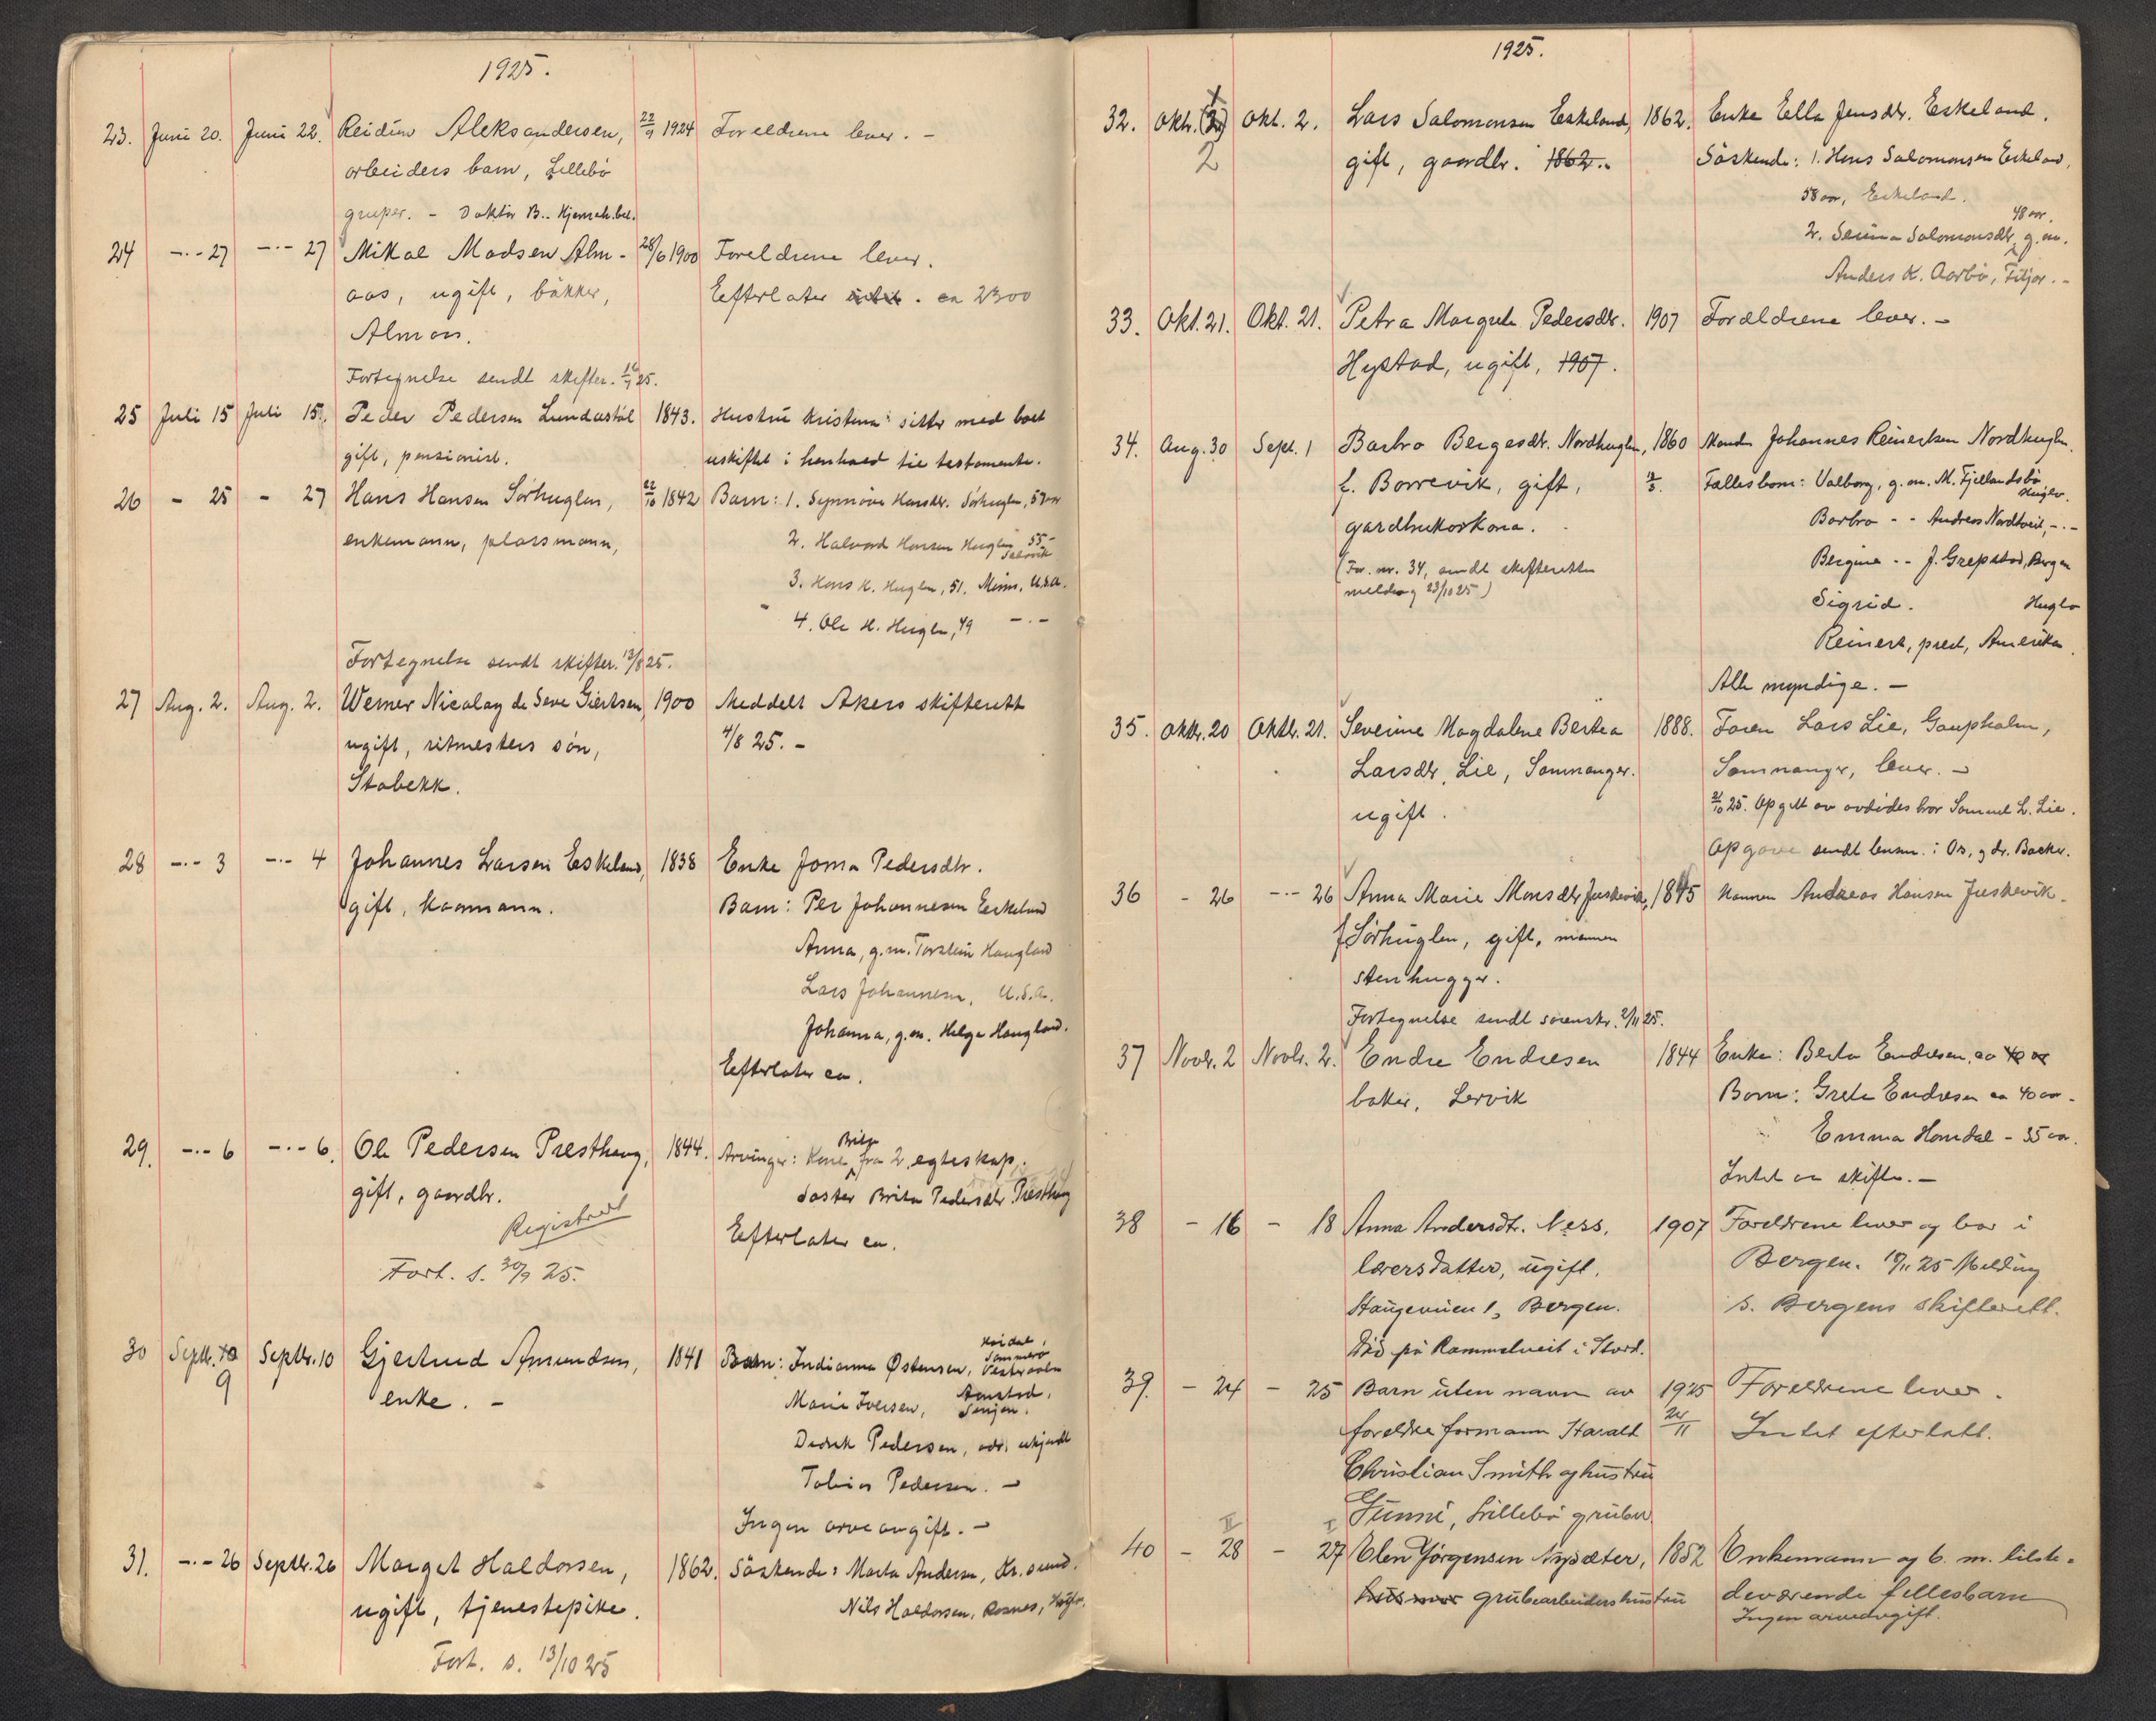 1925.
23. Juni 20. Juni 22. Reidun Aleksandersen, 22/9 1924 Foreldrene lever. -
arbeiders barn, Lillebö
gruper. - Doktor B.
24 -.- 27 -.- 27 Mikal Madsen Alm- 28/6 1900 Foreldrene lever.
aas, ugift, bakker, Efterlater ca 2300
Almaas.
Fortegnelse sendt skifter. 25.
25 Juli 15 Juli 15. Peder Pedersen Lundastöl 1843. Hustru Kristina sitter med boet
gift, pensionist. uskiftet i henhold til testamente.
26 - 25 - 27 Hans Hansen Sörhuglen, 22/10 1842 Barn: 1. Synnöve Hansdtr. Sörhuglen, 57 aar
enkemann, plassmann, 2. Halvard Hansen Huglen 55 -
3. Hans H. Huglen, 51. Minn. U.S.A.
4. Ole H. Huglen, 49 -.-
Fortegnelse sendt skifter. 13/8 25.
27 Aug. 2. Aug. 2. Werner Nicolay de Seve Giertsen, 1900 Meddelt Akers skifterett
ugift, ritmesters sön, 4/8 25. -
Stabekk.
28 -.- 3 -.- 4 Johannes Larsen Eskeland, 1838 Enke Joma Pedersdtr.
gift, kaarmann. Barn: Per Johannesen Eskeland
Anna, g.m. Torstein Haugland
Lars Johannesen, U.S.A.
Johanna, g.m. Helge Haugland.
Efterlater en.
29. -.- 6 -.- 6. Ole Pedersen Presthaug, 1844. Arvinger: Kone Brita fra 2. egteskap,
gift, gaardbr. söster Brita Pedersdtr Presthaug
Registrert Efterlater en.
Fort. s. 30/9 25.
30 Septbr. 10 9 Septbr. 10 Gjertrud Amundsen, 1841 Barn: Indianna Östensen, Sommerö Vesteraalen
enke. - Marie Iversen, Senjen.
Didrik Pedersen, adr. ukjendt
Tobias Pedersen. -
Ingen arveavgift. -
31. -.- 26 Septbr. 26 Marget Haldorsen, 1862. Söskende: Marta Andersen, Kr.sund.
ugift, tjenestepike. Nils Haldorsen, Rosnes,
Fort. s. 13/10 25
1925.
32. Oktr. (2) 2 Okt. 2. Lars Salomonsen Eskeland, 1862. Enke Ella Jensdtr. Eskeland.
gift, gaardbr. 1862. Söskende: 1. Hans Salomonsen Eskeland,
58 aar, Eskeland.
48 aar.
2. Salomonsdtr, g.m.
Anders K. Aarbö, Fitjar. -
33. Okt. 21. Okt. 21. Petra Margrete Pedersdtr. 1907 Forældrene lever. -
Hystad, ugift, 1907.
34. Aug. 30 Sept. 1 Barbro Bergesdtr. Nordhuglen, 1860 Manden Johannes Reinertsen Nordhuglen.
f. Borrevik, gift, 2/3. Fellesbarn: Valborg, g.m. M. Fjellandsbö Huglo.
gardbrukarkona. Barbro - - Andreas Nordtveit, -.-
(For. nr. 34, sendt skifteretten Bergine - - J. Grepstad, Bergen
melding 23/10 25) Sigrid. Huglo
Reinert, prest, Amerika.
Alle myndige. -
35. Oktr. 20 Oktbr. 21. Severine Magdalene Bertea 1888. Faren Lars Lie, Gaupholm,
Larsdtr. Lie, Samnanger. Samnanger, lever. -
ugift. 21/10 25. Opgitt av avdödes bror Samuel L. Lie.
Opgave sendt lensm. i Os, g dr. Backer.
36 - 26 -.- 26 Anna Marie Monsdtr Juskevik, 1845 Mannen Andreas Hansen Juskevik.
f Sörhuglen, gift, mannen
stenhugger.
Fortegnelse sendt sorenskr. 2/11 25.
37 Novbr. 2 Novbr. 2. Endre Endresen 1844 Enke: Berta Endresen, ca
baker, Lervik Barn: Grete Endresen ca 40 aar.
Emma Homdal - 35 aar.
Intet aa skifte. -
38 - 16 - 18 Anna Andersdtr. Ness, 1907 Foreldrene lever og bor i
lærersdatter, ugift. Bergen. 19/11 25 Melding
Haugeveien 1, Bergen. s. Bergens skifterett.
Död på Rommetveit i Stord.
39. - 24 - 25 Barn uten navn av 1925 Foreldrene lever.
foreldre formann Harald 24/11 Intet efterlatt.
Christian Smith og hustru
Gunni, Lillebö gruber
40 - 28 II - 27 I Elen Jörgensen Nysæter, 1852 Enkemann og 6. m. tilste-
husmor grubearbeiders hustru deværende fellesbarn
Ingen arveavgift.